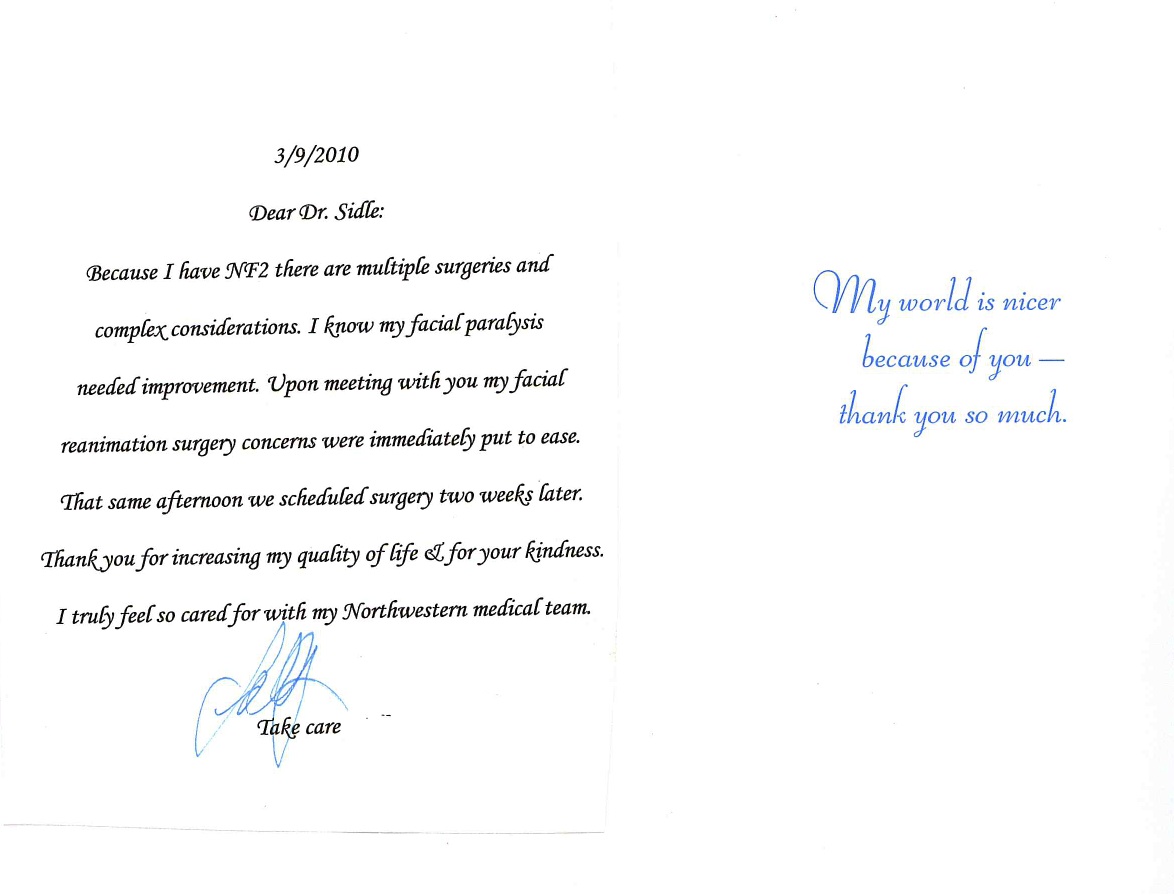 3/9/2010
Dear Dr. Sidle:
Because I have NF2 there are multiple surgeries and
complex considerations. I know my facial paralysis
needed improvement. Upon meeting with you my facial
reanimation surgery concerns were immediately put to ease.
That same afternoon we scheduled surgery two weeks later.
Thank you for increasing my quality of life & for your kindness.
I truly feel so cared for with my Northwestern medical team.
Take care
My world is nicer
because of you —
thank you so much.